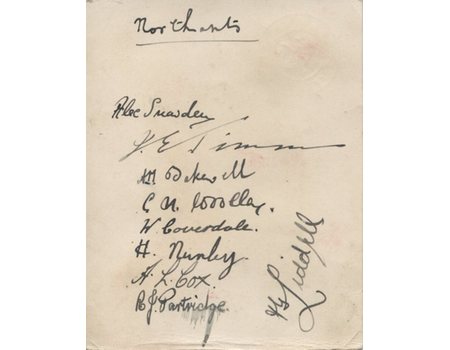 Northants
Alec Snowden
J. E. Timms
A H Bakewell
C N Woolley
W Coverdale.
H. Nunley
A. L. Cox.
R J Partridge.
A G Liddell